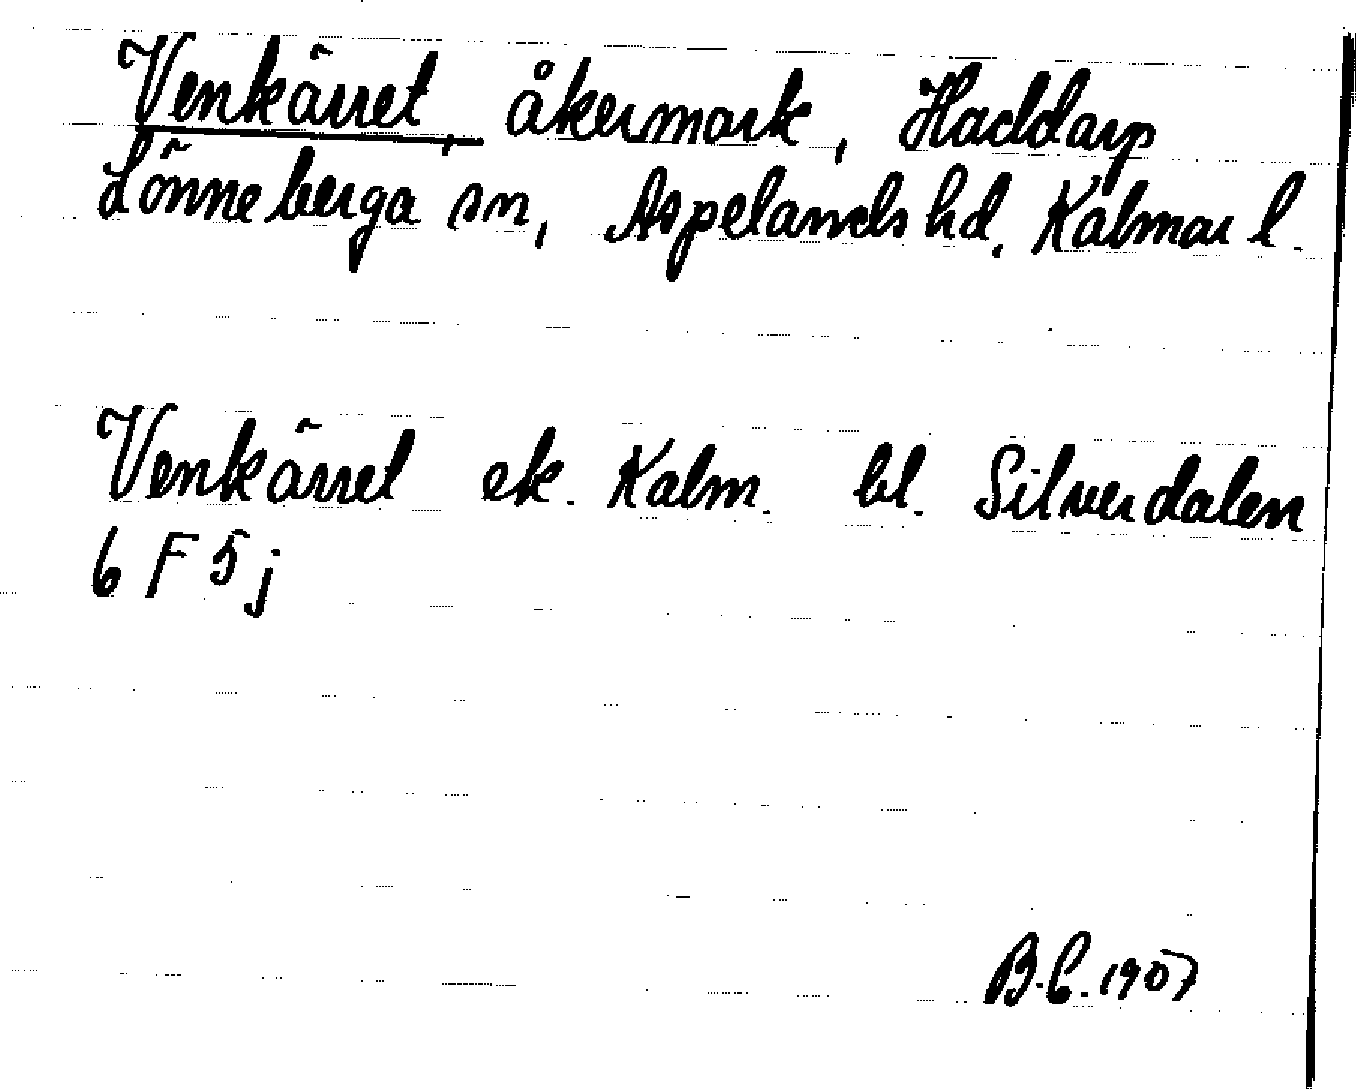 Venkärret, åkermark, Haddarp
Lönneberga sn, Aspelands hd. Kalmar l.
Venkärret ek. Kalm. bl. Silverdalen
6 F 5 j
B.C. 1907